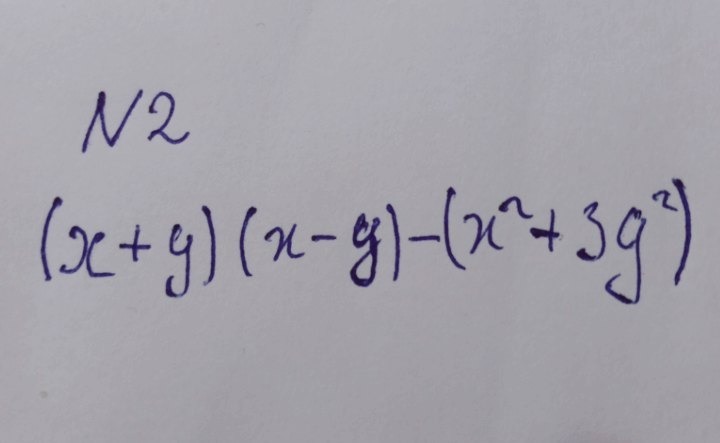 N2
(x+y)(x-y)-(x²+3y²)